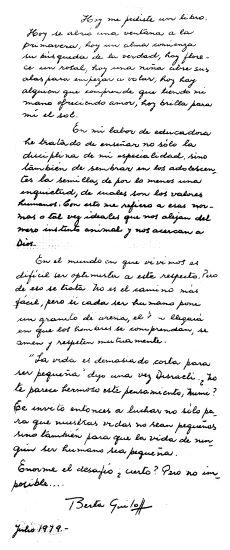 Hoy me pediste un libro.
Hoy se abrió una ventana a la
primavera, hoy un alma comienza
su búsqueda de la verdad, hoy flore-
ce un rosal, hoy una niña abre sus
alas para empezar a volar, hoy hay
alguien que comprende que tiendo mi
mano ofreciendo amor, hoy brilla para
mí el sol.
En mi labor de educadora
he tratado de enseñar no sólo la
disciplina de mi especialidad, sino
también de sembrar en los adolescen-
tes la semilla, de por lo menos una
inquietud, de cuales son los valores
humanos. Con esto me refiero a esas nor-
mas o tal vez ideales que nos alejan del
mero instinto animal y nos acercan a
Dios.
En el mundo en que vivimos es
difícil ser optimista a este respecto. Pero
de eso se trata. No es el camino más
fácil, pero si cada ser humano pone
un granito de arena, el llegará
en que los hombres se comprendan, se
amen y respeten mutuamente.
"La vida es demasiado corta para
ser pequeña" dijo una vez Disraeli. ¿No
te parece hermoso este pensamiento, Mumi?
Te invito entonces a luchar no sólo pa-
ra que nuestras vidas no sean pequeñas
sino también para que la vida de nin-
gún ser humano sea pequeña.
Enorme el desafío ¿cierto? Pero no im-
posible....
Berta Guiloff
Julio 1979.-